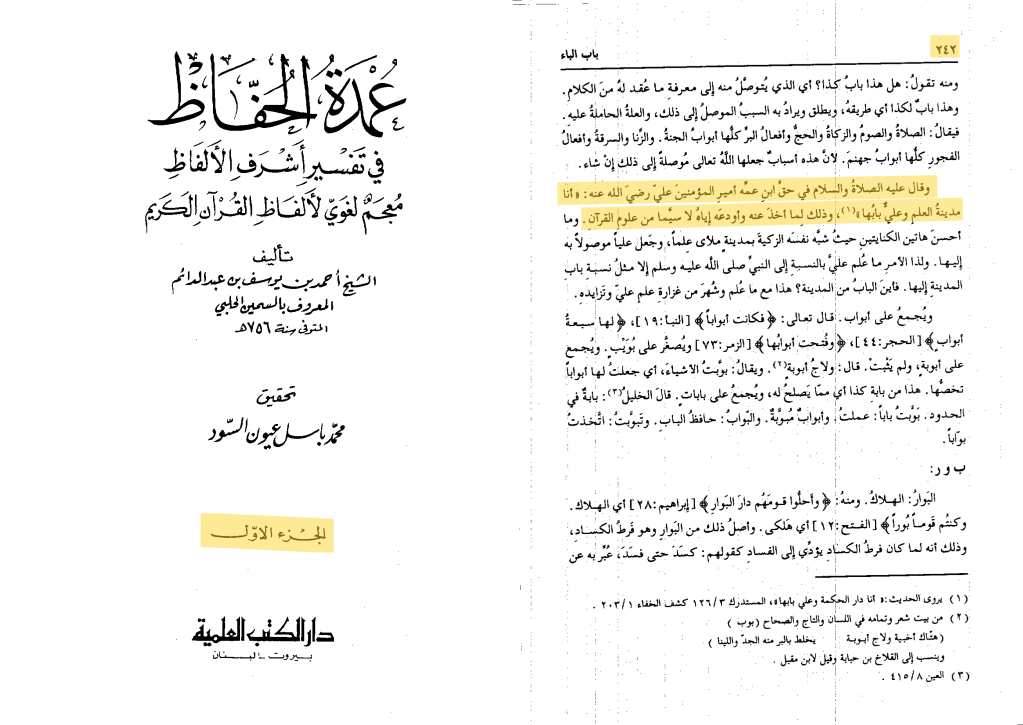 عُمْدَةُ الحُفَّاظْ
في تَفْسِيرِ أَشْرَفِ الأَلفَاظِ
مُعجَمٌ لغَويّ لأَلفَاظِ القُرآنِ الكَرِيم
تأليف
الشيخ أحمد بن يوسف بن عبد الدائم
المعروف بالسمين الحلبي
المتوفى سنة ٧٥٦هـ
تحقيق
محمد باسل عيون السّود
الجزء الأول
دار الكتب العلمية
بيروت - لبنان
٢٤٢
باب الباء
ومنه تقولُ: هل هذا بابُ كذا؟ أي الذي يُتوصَّلُ منه إلى معرفةِ ما عُقد لهُ منَ الكلامِ.
وهذا بابٌ لكذا أي طريقهُ، ويطلق ويرادُ به السببُ الموصلُ إلى ذلك، والعلةُ الحاملةُ عليه.
فيقالُ: الصلاةُ والصومُ والزكاةُ والحجُّ وأفعالُ البرِّ كلُّها أبوابُ الجنةِ. والزِّنا والسرقةُ وأفعالُ
الفجورِ كلُّها أبوابُ جهنمَ. لأنَّ هذه أسبابٌ جعلها اللَّهُ تعالى مُوصلةً إلى ذلك إنْ شاء.
وقال عليه الصلاةُ والسلام في حقِّ ابنِ عمِّه أميرِ المؤمنينَ عليّ رضيَ الله عنه: «أنا
مدينةُ العلمِ وعليٌّ بابُها»(١)، وذلك لما أخذَ عنه وأودعَه إياهُ لا سيَّما من علومِ القرآنِ. وما
أحسنَ هاتين الكنايتينِ حيثُ شبَّه نفسَه الزكيةَ بمدينةٍ ملأى علماً، وجَعل علياً موصولاً به
إليها. ولذا الأمرِ ما عُلم عليٌّ بالنسبةِ إلى النبيِّ صلى اللَّه عليه وسلم إلا مثلُ نسبةِ بابِ
المدينةِ إليها. فأينَ البابُ من المدينة؟ هذا مع ما عُلم وشُهرَ من غزارةِ علمِ عليٍّ وتَزايدهِ.
ويُجمعُ على أبواب. قال تعالى: ﴿فكانت أبواباً﴾ [النبأ:١٩]، ﴿لها سبعةُ
أبوابٍ﴾ [الحجر:٤٤]، ﴿وفُتحت أبوابُها﴾ [الزمر:٧٣] ويُصغَّر على بُوَيْبٍ. ويُجمع
على أبوبةٍ، ولم يَثبتْ. قال: ولاجُ أبوبةٍ(٢). ويقالُ: بوَّبتُ الأشياءَ، أي جعلتُ لها أبواباً
تخصُّها. هذا من بابةِ كذا أي ممّا يَصلحُ له، ويُجمعُ على باباتٍ. قالَ الخليلُ(٣): بابةٌ في
الحدود. بَوَّبتُ باباً: عملتُ. وأبوابٌ مُبوَّبةٌ. والبّوابُ: حافظُ البابِ. وتَبوبَّتُ: اتَّخذتُ
بوّاباً.
ب و ر:
البَوارُ: الهلاكُ. ومنهُ: ﴿وأحلُّوا قومَهُم دارَ البَوارِ﴾ [إبراهيم:٢٨] أي الهلاك.
وكنتُم قوماً بُوراً﴾ [الفتح:١٢] أي هَلكى. وأصلُ ذلك من البَوارِ وهو فَرطُ الكسادِ،
وذلك أنه لما كان فرطُ الكسادِ يؤدِّي إلى الفسادِ كقولهم: كسَدَ حتى فسَدَ، عُبِّر به عن
(١) يروى الحديث: «أنا دار الحكمة وعلي بابها»، المستدرك ١٢٦/٣ كشف الخفاء ٢٠٣/١ .
(٢) من بيت شعر وتمامه في اللسان والتاج والصحاح (بوب )
(هتّاك أخبية ولاج أبوبة يخلط بالبر منه الجدّ واللينا )
وينسب إلى القلاخ بن حبابة وقيل لابن مقبل .
(٣) العين ٤١٥/٨ .